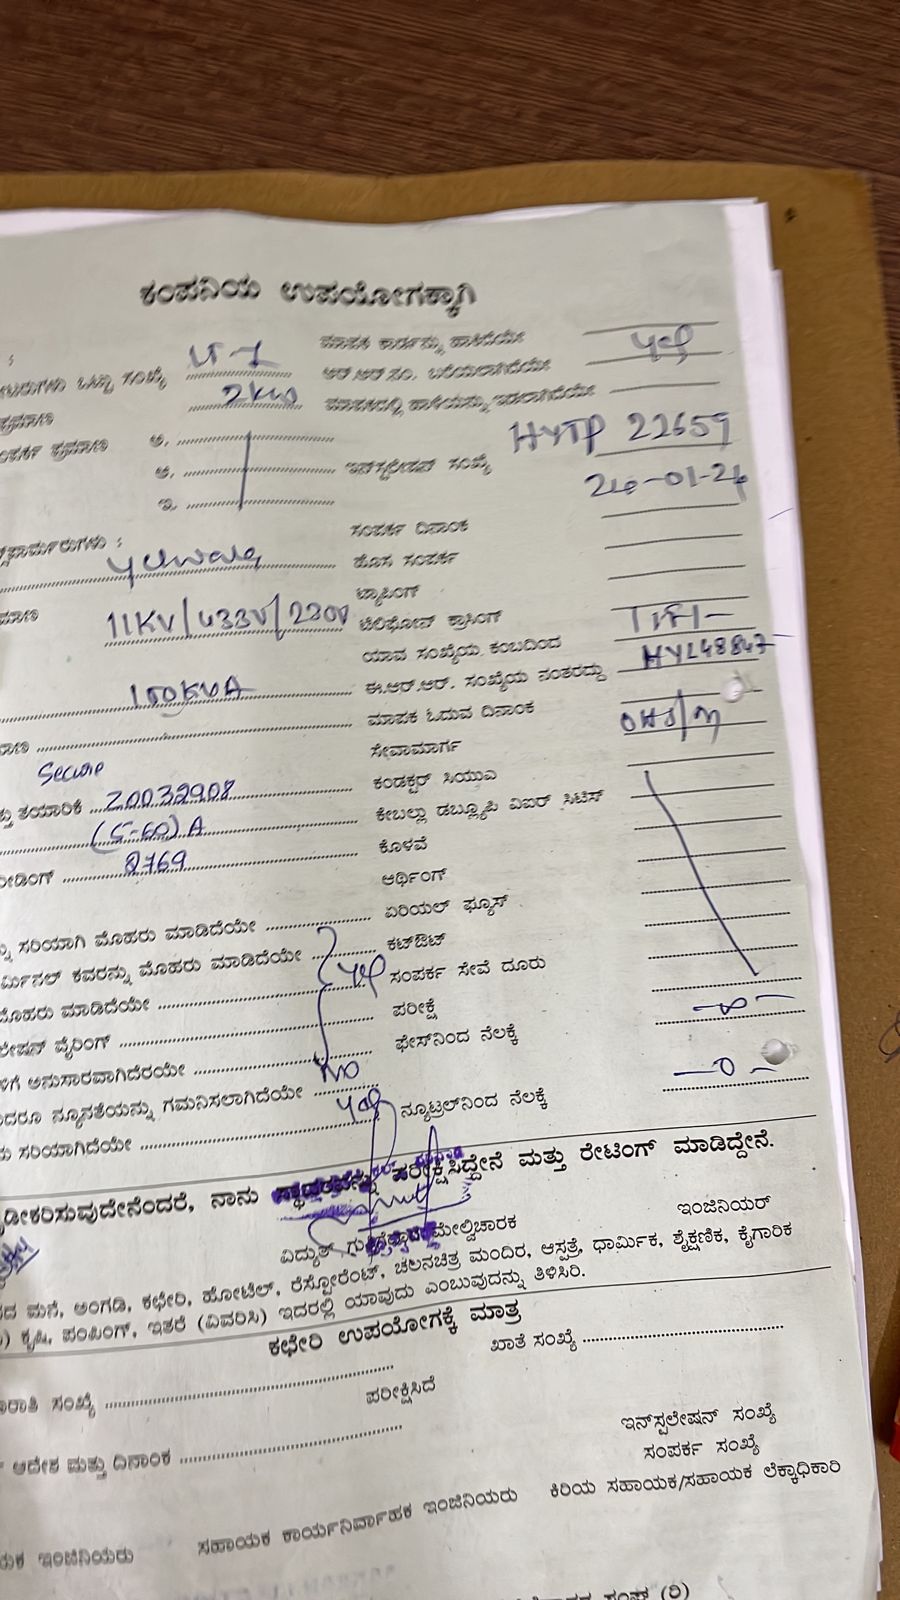 ಕಂಪನಿಯ ಉಪಯೋಗಕ್ಕಾಗಿ
ಮಾಪಕ ಕಾರ್ಡನ್ನು ಹಾಕಿದೆಯೇ
ಒಟ್ಟು ಸಂಖ್ಯೆ LT-1 ಆರ್.ಆರ್.ಸಂ. ಬರೆಯಲಾಗಿದೆಯೇ yes
ಪ್ರಮಾಣ 2KW ಮಾಪಕದಲ್ಲಿ ಹಾಳೆಯನ್ನು ಇಡಲಾಗಿದೆಯೇ
ಪ್ರಮಾಣ ಅ.
ಆ. ಇನ್ಸ್ಟಲೇಷನ್ ಸಂಖ್ಯೆ HYTP 22659
ಇ. 24-01-24
ಸಂಪರ್ಕ ದಿನಾಂಕ
yelwala ಹೊಸ ಸಂಪರ್ಕ
ಟ್ಯಾಪಿಂಗ್
11KV/433V/230V ಟೆಲಿಫೋನ್ ಕ್ರಾಸಿಂಗ್
ಯಾವ ಸಂಖ್ಯೆಯ ಕಂಬದಿಂದ
150KVA ಈ.ಆರ್.ಆರ್. ಸಂಖ್ಯೆಯ ನಂತರದ್ದು HYL48847
ಮಾಪಕ ಓದುವ ದಿನಾಂಕ
Secure ಸೇವಾಮಾರ್ಗ
ತಯಾರಿಕೆ 20032908 ಕಂಡಕ್ಟರ್ ಸಿಯುವಿ
(5-60) A ಕೇಬಲ್ಲು ಡಬ್ಲ್ಯೂಪಿ ವಿಐರ್ ಸಿಟಿಸ್
8769 ಕೊಳವೆ
ಆರ್ಥಿಂಗ್
ಸರಿಯಾಗಿ ಮೊಹರು ಮಾಡಿದೆಯೇ ಏರಿಯಲ್ ಫ್ಯೂಸ್
ಕವರನ್ನು ಮೊಹರು ಮಾಡಿದೆಯೇ ಕಟ್‌ಔಟ್
ಮೊಹರು ಮಾಡಿದೆಯೇ yes ಸಂಪರ್ಕ ಸೇವೆ ದೂರು
ವೈರಿಂಗ್ ಪರೀಕ್ಷೆ
ಅನುಸಾರವಾಗಿದೆರಯೇ ಫೇಸ್‌ನಿಂದ ನೆಲಕ್ಕೆ
ನ್ಯೂನತೆಯನ್ನು ಗಮನಿಸಲಾಗಿದೆಯೇ NO
ಸರಿಯಾಗಿದೆಯೇ yes ನ್ಯೂಟ್ರಲ್‌ನಿಂದ ನೆಲಕ್ಕೆ
ನಾನು ಸ್ಥಾವರವನ್ನು ಪರೀಕ್ಷಿಸಿದ್ದೇನೆ ಮತ್ತು ರೇಟಿಂಗ್ ಮಾಡಿದ್ದೇನೆ.
ವಿದ್ಯುತ್ ಗುತ್ತಿಗೆದಾರ/ಮೇಲ್ವಿಚಾರಕ ಇಂಜಿನಿಯರ್
ಮನೆ, ಅಂಗಡಿ, ಕಛೇರಿ, ಹೋಟೆಲ್, ರೆಸ್ಟೋರೆಂಟ್, ಚಲನಚಿತ್ರ ಮಂದಿರ, ಆಸ್ಪತ್ರೆ, ಧಾರ್ಮಿಕ, ಶೈಕ್ಷಣಿಕ, ಕೈಗಾರಿಕ
ಕೃಷಿ, ಪಂಪಿಂಗ್, ಇತರೆ (ವಿವರಿಸಿ) ಇದರಲ್ಲಿ ಯಾವುದು ಎಂಬುವುದನ್ನು ತಿಳಿಸಿರಿ.
ಕಛೇರಿ ಉಪಯೋಗಕ್ಕೆ ಮಾತ್ರ
ಸಂಖ್ಯೆ ಖಾತೆ ಸಂಖ್ಯೆ
ಪರೀಕ್ಷಿಸಿದೆ
ಆದೇಶ ಮತ್ತು ದಿನಾಂಕ ಇನ್‌ಸ್ಪಲೇಷನ್ ಸಂಖ್ಯೆ
ಸಂಪರ್ಕ ಸಂಖ್ಯೆ
ಇಂಜಿನಿಯರು ಸಹಾಯಕ ಕಾರ್ಯನಿರ್ವಾಹಕ ಇಂಜಿನಿಯರು ಕಿರಿಯ ಸಹಾಯಕ/ಸಹಾಯಕ ಲೆಕ್ಕಾಧಿಕಾರಿ